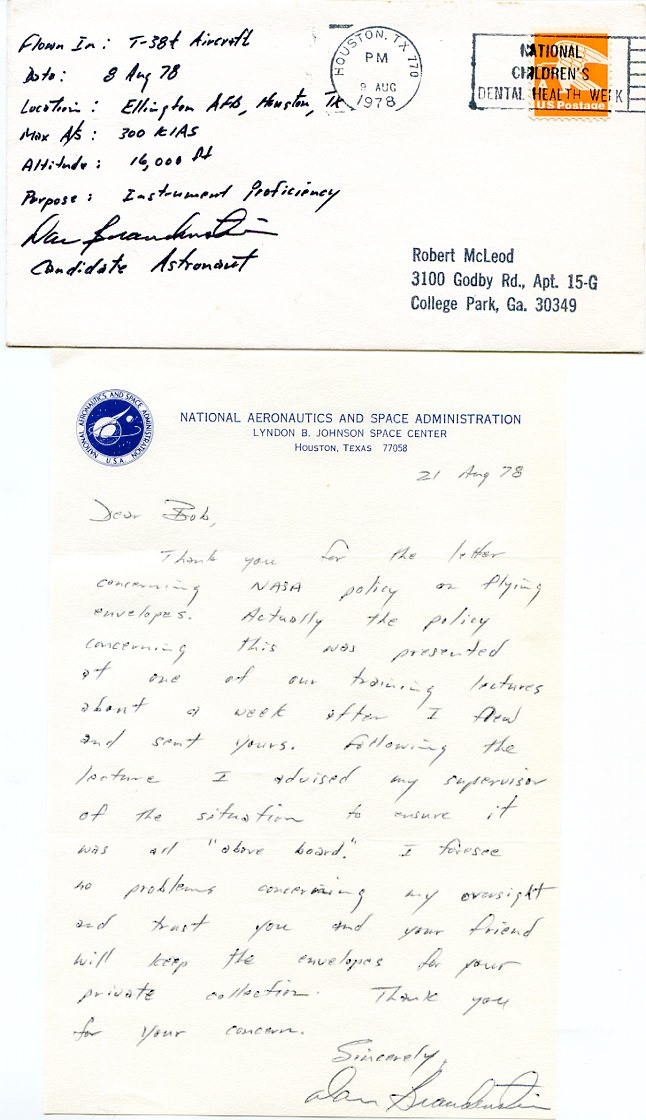 Flown In: T-38t Aircraft
Date: 8 Aug 78
Location: Ellington AFB, Houston, TX
Max A/S: 300 KIAS
Altitude: 16,000 ft
Purpose: Instrument Proficiency
Dan Brandenstein
Candidate Astronaut
HOUSTON, TX 770
PM
9 AUG
1978
NATIONAL
CHILDREN'S
DENTAL HEALTH WEEK
US Postage
Robert McLeod
3100 Godby Rd., Apt. 15-G
College Park, Ga. 30349
NATIONAL AERONAUTICS AND SPACE ADMINISTRATION
U.S.A
NATIONAL AERONAUTICS AND SPACE ADMINISTRATION
LYNDON B. JOHNSON SPACE CENTER
HOUSTON, TEXAS 77058
21 Aug 78
Dear Bob,
Thank you for the letter
concerning NASA policy on flying
envelopes. Actually the policy
concerning this was presented
at one of our training lectures
about a week after I flew
and sent yours. Following the
lecture I advised my supervisor
of the situation to ensure it
was all "above board." I foresee
no problems concerning my oversight
and trust you and your friend
will keep the envelopes for your
private collection. Thank you
for your concern.
Sincerely,
Dan Brandenstein